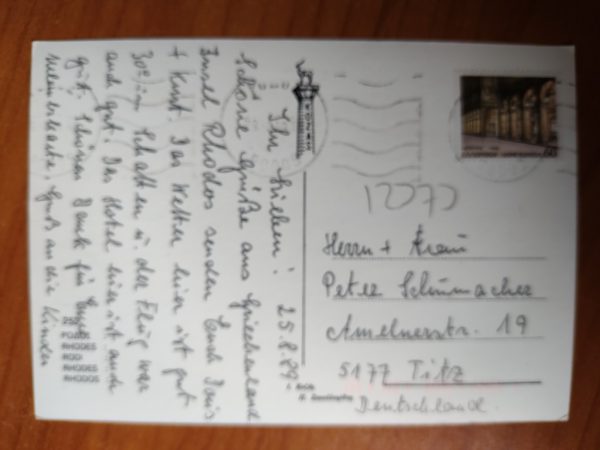 Ihr Lieben! 25.8.89
Schöne Grüße aus Griechenland
Insel Rhodos senden Euch Doris
+ Kurt. Das Wetter hier ist gut
30° im Schatten u. der Flug war
auch gut. Das Hotel hier ist auch
gut. Schönen Dank für Eure
Gruß an die Kinder
Herrn + Frau
Peter Schumacher
Amelnerstr. 19
5177 Titz
Deutschland.
RHODES
RHODES
RHODOS